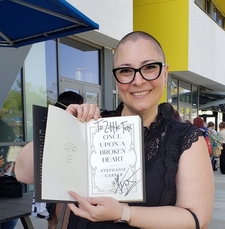 To Zette Fox
ONCE
UPON A
BROKEN
HEART
STEPHANIE
GARBER